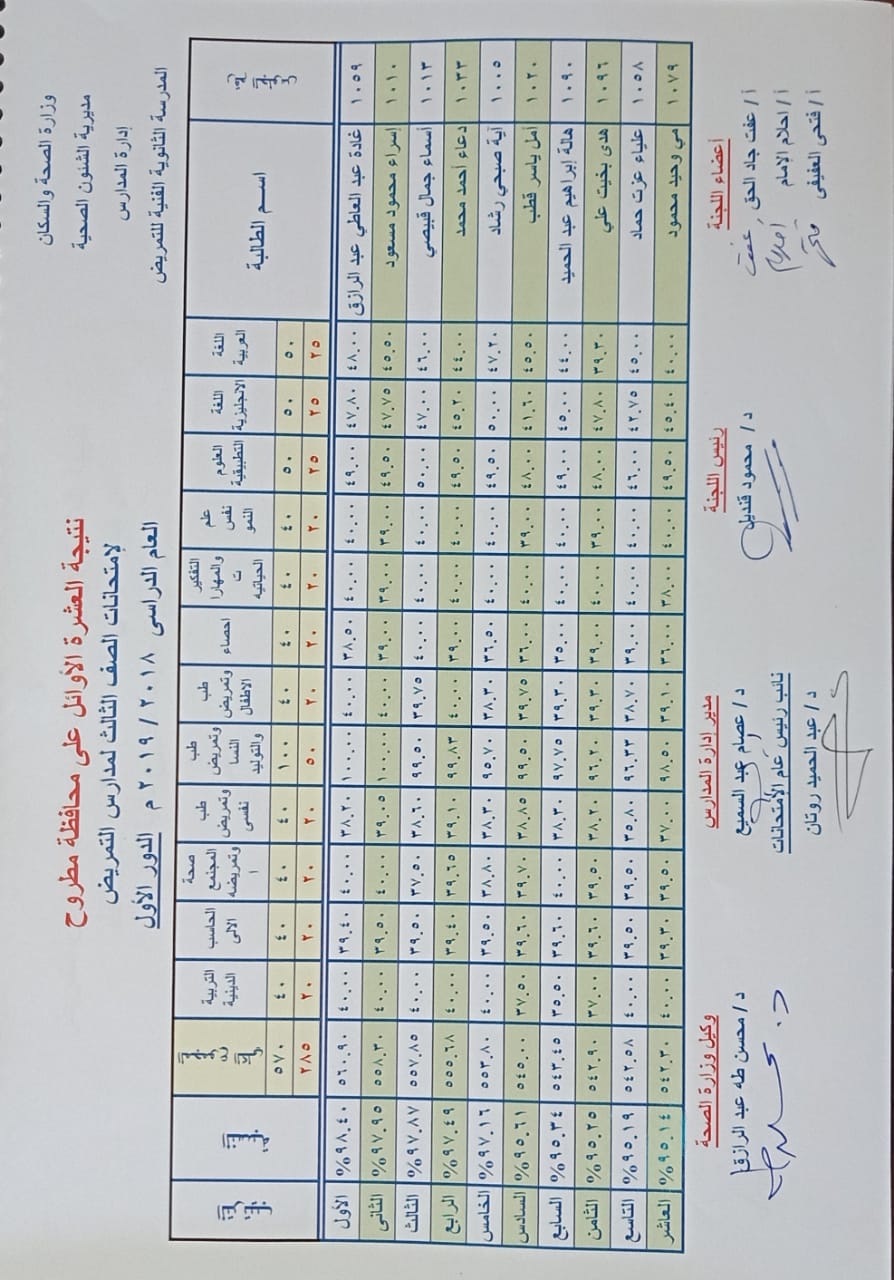 وزارة الصحة والسكان
مديرية الشئون الصحية
إدارة المدارس
المدرسة الثانوية الفنية للتمريض
نتيجة العشرة الأوائل على محافظة مطروح
لإمتحانات الصف الثالث لمدارس التمريض
العام الدراسى ٢٠١٨ / ٢٠١٩ م الدور الأول
اسم الطالبة اللغة العربية اللغة الانجليزية العلوم التطبيقية علم نفس النمو التفكير والمهارات الحياتيه احصاء طب وتمريض الاطفال طب وتمريض النسا والتوليد طب وتمريض نفسى صحة المجتمع وتمريضه الحاسب الالى التربية الدينية
٥٠ ٥٠ ٥٠ ٤٠ ٤٠ ٤٠ ٤٠ ١٠٠ ٤٠ ٤٠ ٤٠ ٤٠ ٥٧٠
٢٥ ٢٥ ٢٥ ٢٠ ٢٠ ٢٠ ٢٠ ٥٠ ٢٠ ٢٠ ٢٠ ٢٠ ٢٨٥
١٠٥٩ غادة عبد العاطي عبد الرازق ٤٨.٠٠ ٤٧.٨٠ ٤٩.٠٠ ٤٠.٠٠ ٤٠.٠٠ ٣٨.٥٠ ٤٠.٠٠ ١٠٠.٠٠ ٣٨.٢٠ ٤٠.٠٠ ٣٩.٤٠ ٤٠.٠٠ ٥٦٠.٩٠ ٩٨.٤٠% الأول
١٠١٠ اسراء محمود مسعود ٤٥.٥٠ ٤٧.٧٥ ٤٩.٥٠ ٣٩.٠٠ ٣٩.٠٠ ٣٩.٠٠ ٤٠.٠٠ ١٠٠.٠٠ ٣٩.٠٥ ٤٠.٠٠ ٣٩.٥٠ ٤٠.٠٠ ٥٥٨.٣٠ ٩٧.٩٥% الثانى
١٠١٣ أسماء جمال قبيصي ٤٦.٠٠ ٤٧.٠٠ ٥٠.٠٠ ٤٠.٠٠ ٤٠.٠٠ ٤٠.٠٠ ٣٩.٧٥ ٩٩.٥٠ ٣٨.٦٠ ٣٧.٥٠ ٣٩.٥٠ ٤٠.٠٠ ٥٥٧.٨٥ ٩٧.٨٧% الثالث
١٠٣٣ دعاء أحمد محمد ٤٤.٠٠ ٤٥.٢٠ ٤٩.٥٠ ٤٠.٠٠ ٤٠.٠٠ ٣٩.٠٠ ٤٠.٠٠ ٩٩.٨٣ ٣٩.١٠ ٣٩.٦٥ ٣٩.٤٠ ٤٠.٠٠ ٥٥٥.٦٨ ٩٧.٤٩% الرابع
١٠٠٥ آية صبحي رشاد ٤٧.٢٠ ٥٠.٠٠ ٤٩.٥٠ ٤٠.٠٠ ٤٠.٠٠ ٣٦.٥٠ ٣٨.٣٠ ٩٥.٧٠ ٣٨.٣٠ ٣٨.٨٠ ٣٩.٥٠ ٤٠.٠٠ ٥٥٣.٨٠ ٩٧.١٦% الخامس
١٠٢٠ أمل ياسر قطب ٤٥.٥٠ ٤١.٦٠ ٤٨.٠٠ ٣٩.٠٠ ٤٠.٠٠ ٣٦.٠٠ ٣٩.٧٥ ٩٩.٥٠ ٣٨.٨٥ ٣٩.٧٠ ٣٩.٦٠ ٣٧.٥٠ ٥٤٥.٠٠ ٩٥.٦١% السادس
١٠٩٠ هالة إبراهيم عبد الحميد ٤٤.٠٠ ٤٥.٠٠ ٤٩.٠٠ ٤٠.٠٠ ٤٠.٠٠ ٣٥.٠٠ ٣٩.٣٠ ٩٧.٧٥ ٣٨.٣٠ ٤٠.٠٠ ٣٩.٦٠ ٣٥.٥٠ ٥٤٣.٤٥ ٩٥.٣٤% السابع
١٠٩٦ هدى بخيت علي ٣٩.٣٠ ٤٧.٨٠ ٤٨.٠٠ ٣٩.٠٠ ٤٠.٠٠ ٣٩.٠٠ ٣٩.٣٠ ٩٦.٢٠ ٣٨.٢٠ ٣٩.٥٠ ٣٩.٦٠ ٣٧.٠٠ ٥٤٢.٩٠ ٩٥.٢٥% الثامن
١٠٥٨ علياء عزت حماد ٤٥.٠٠ ٤٢.٧٥ ٤٦.٠٠ ٤٠.٠٠ ٤٠.٠٠ ٣٩.٠٠ ٣٨.٧٠ ٩٦.٣٣ ٣٥.٨٠ ٣٩.٥٠ ٣٩.٥٠ ٤٠.٠٠ ٥٤٢.٥٨ ٩٥.١٩% التاسع
١٠٧٩ مي وحيد محمود ٤٠.٠٠ ٤٥.٤٠ ٤٩.٥٠ ٤٠.٠٠ ٣٨.٠٠ ٣٦.٠٠ ٣٩.١٠ ٩٨.٥٠ ٣٧.٠٠ ٣٩.٥٠ ٣٩.٣٠ ٤٠.٠٠ ٥٤٢.٣٠ ٩٥.١٤% العاشر
أعضاء اللجنة
أ / عفت جاد الحق عفت
أ / احلام الامام أحلام
أ / فتحى العفيفى فتحى
رئيس اللجنة
د / محمود قنديل
مدير إدارة المدارس
د / عصام عبد السميع
نائب رئيس عام الإمتحانات
د / عبد الحميد روتان
وكيل وزارة الصحة
د / محسن طه عبد الرازق